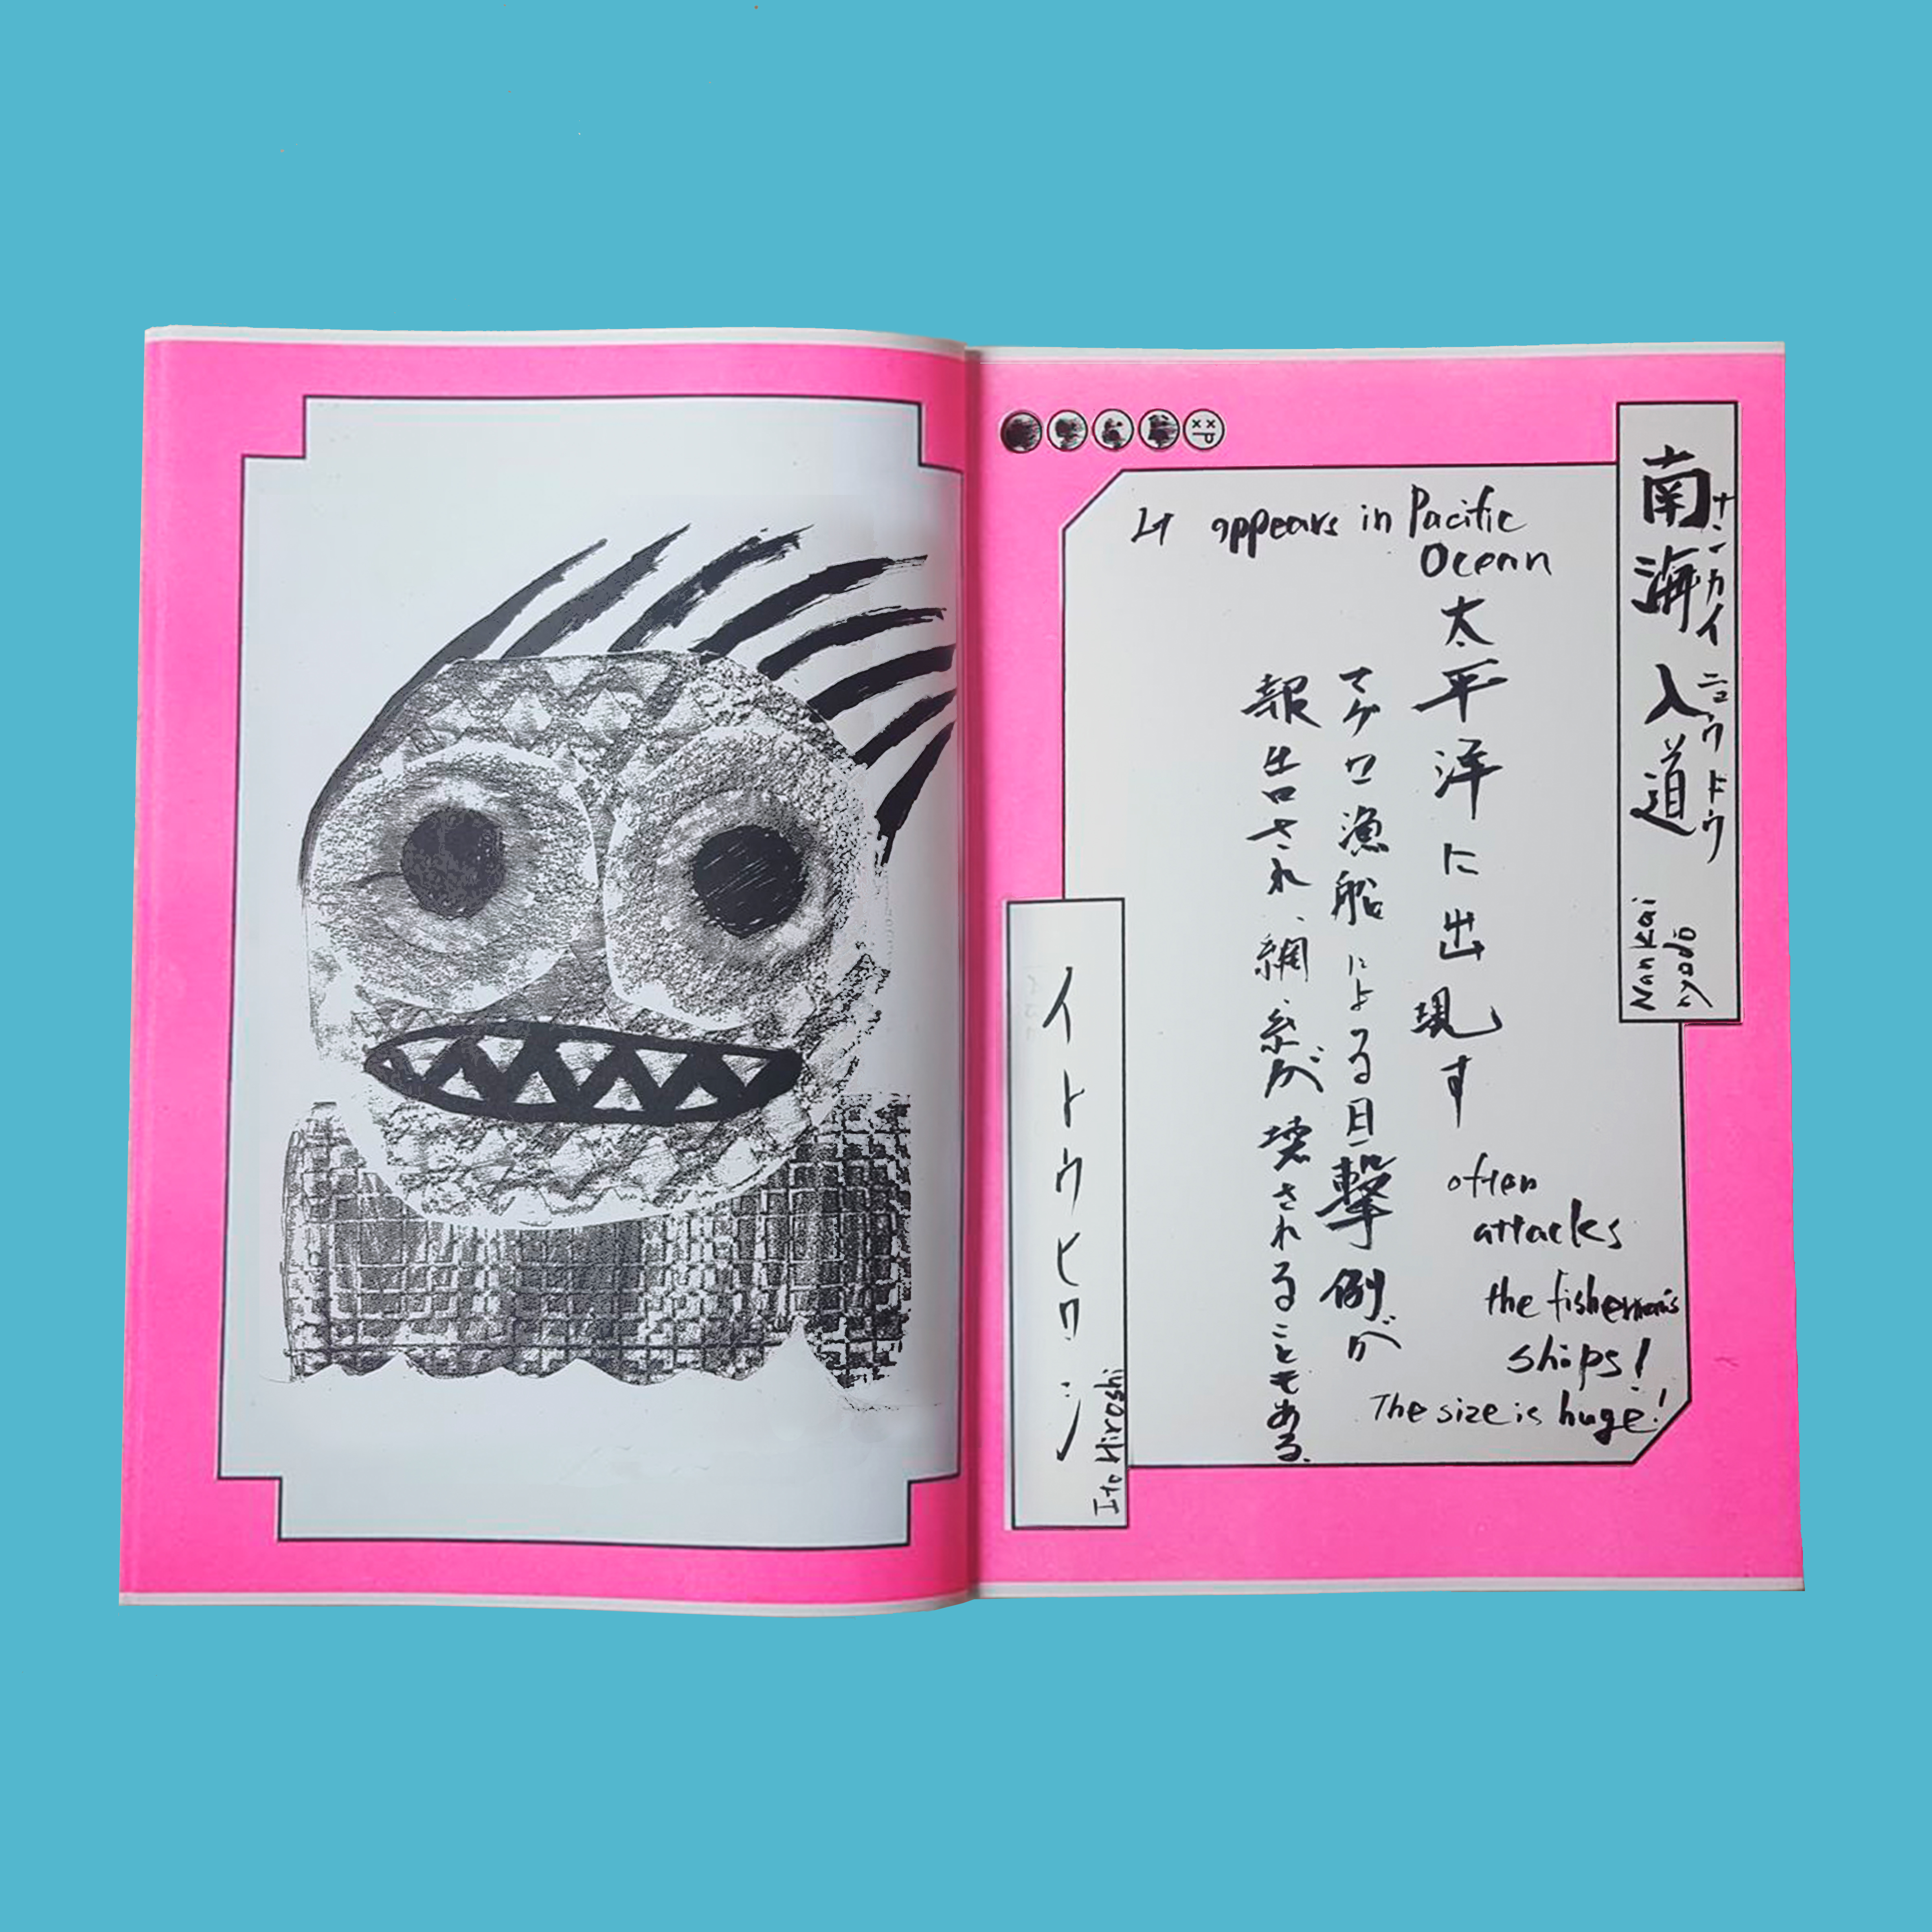 南海入道
ナンカイニュウドウ
Nankai
nyodō
It appears in Pacific
Ocean
太平洋に出現す
マグロ漁船による目撃例が
報告され、網・糸が壊されることもある。
often
attacks
the fisherman's
ships!
The size is huge!
イトウヒロシ
Ito Hiroshi